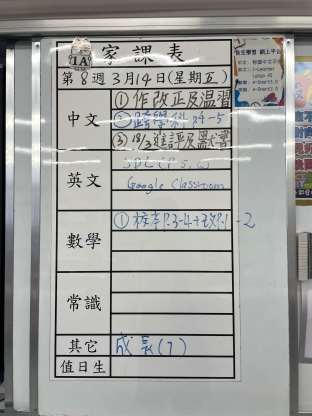 1A 家課表
第8週3月14日(星期五)
中文
①作改正及溫習
②跨學科 P.4-5
③18/3進評及默書
英文
SDL (P.5,6)
Google Classroom
數學
①校本P.3-4+改P.1-2
常識
其它
成長(7)
值日生
自主學習 網上平台